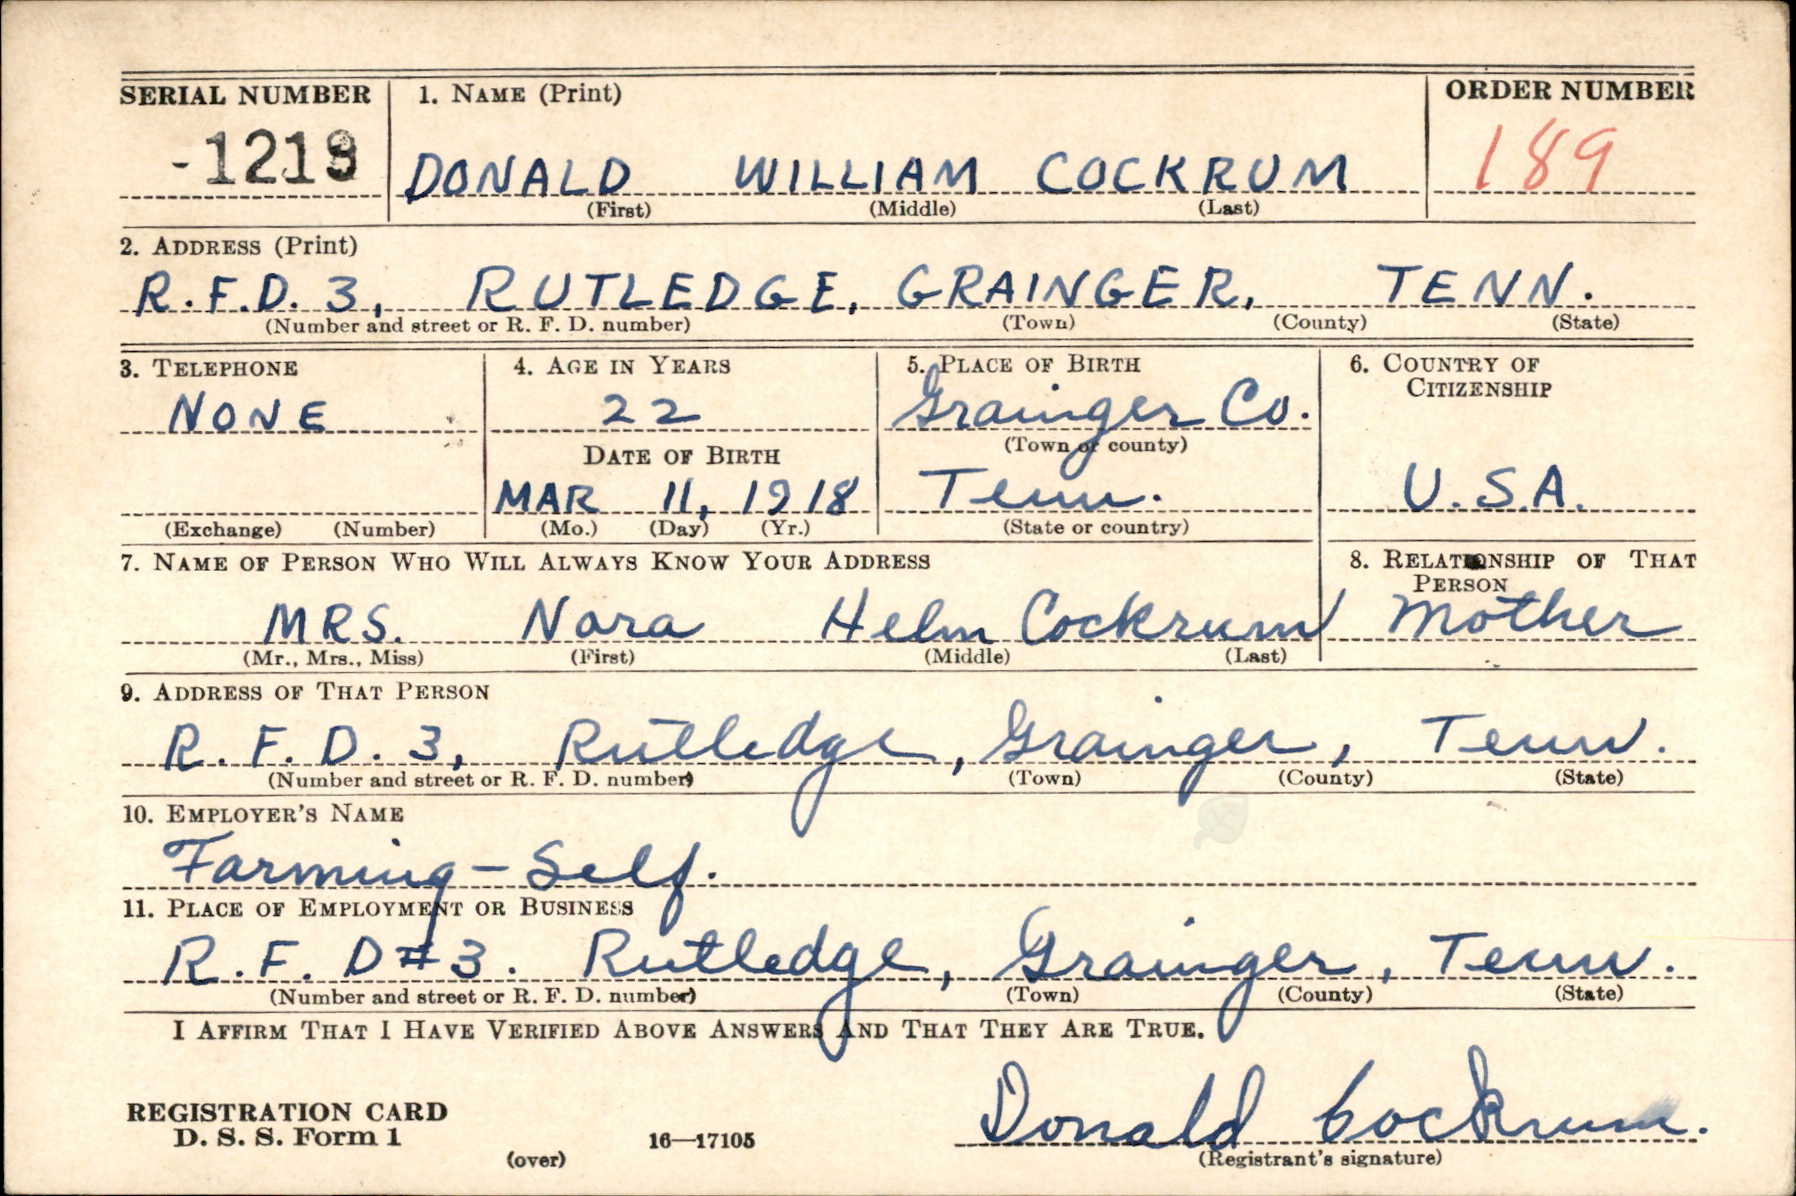 SERIAL NUMBER 1. NAME (Print) ORDER NUMBER
DONALD WILLIAM COCKRUM 189
(First) (Middle) (Last)
2. ADDRESS (Print)
R.F.D. 3, RUTLEDGE, GRAINGER, TENN.
(Number and street or R. F. D. number) (Town) (County) (State)
3. TELEPHONE 4. AGE IN YEARS 5. PLACE OF BIRTH 6. COUNTRY OF
CITIZENSHIP
NONE 22 Grainger Co.
(Town or county)
DATE OF BIRTH
MAR 11, 1918 Tenn. U.S.A.
(Exchange) (Number) (Mo.) (Day) (Yr.) (State or country)
7. NAME OF PERSON WHO WILL ALWAYS KNOW YOUR ADDRESS 8. RELATIONSHIP OF THAT
PERSON
MRS. Nora Helm Cockrum Mother
(Mr., Mrs., Miss) (First) (Middle) (Last)
9. ADDRESS OF THAT PERSON
R. F. D. 3, Rutledge, Grainger, Tenn.
(Number and street or R. F. D. number) (Town) (County) (State)
10. EMPLOYER'S NAME
Farming - Self.
11. PLACE OF EMPLOYMENT OR BUSINESS
R. F. D #3. Rutledge, Grainger, Tenn.
(Number and street or R. F. D. number) (Town) (County) (State)
I AFFIRM THAT I HAVE VERIFIED ABOVE ANSWERS AND THAT THEY ARE TRUE.
REGISTRATION CARD
D. S. S. Form 1 16—17105 Donald Cockrum.
(over) (Registrant's signature)